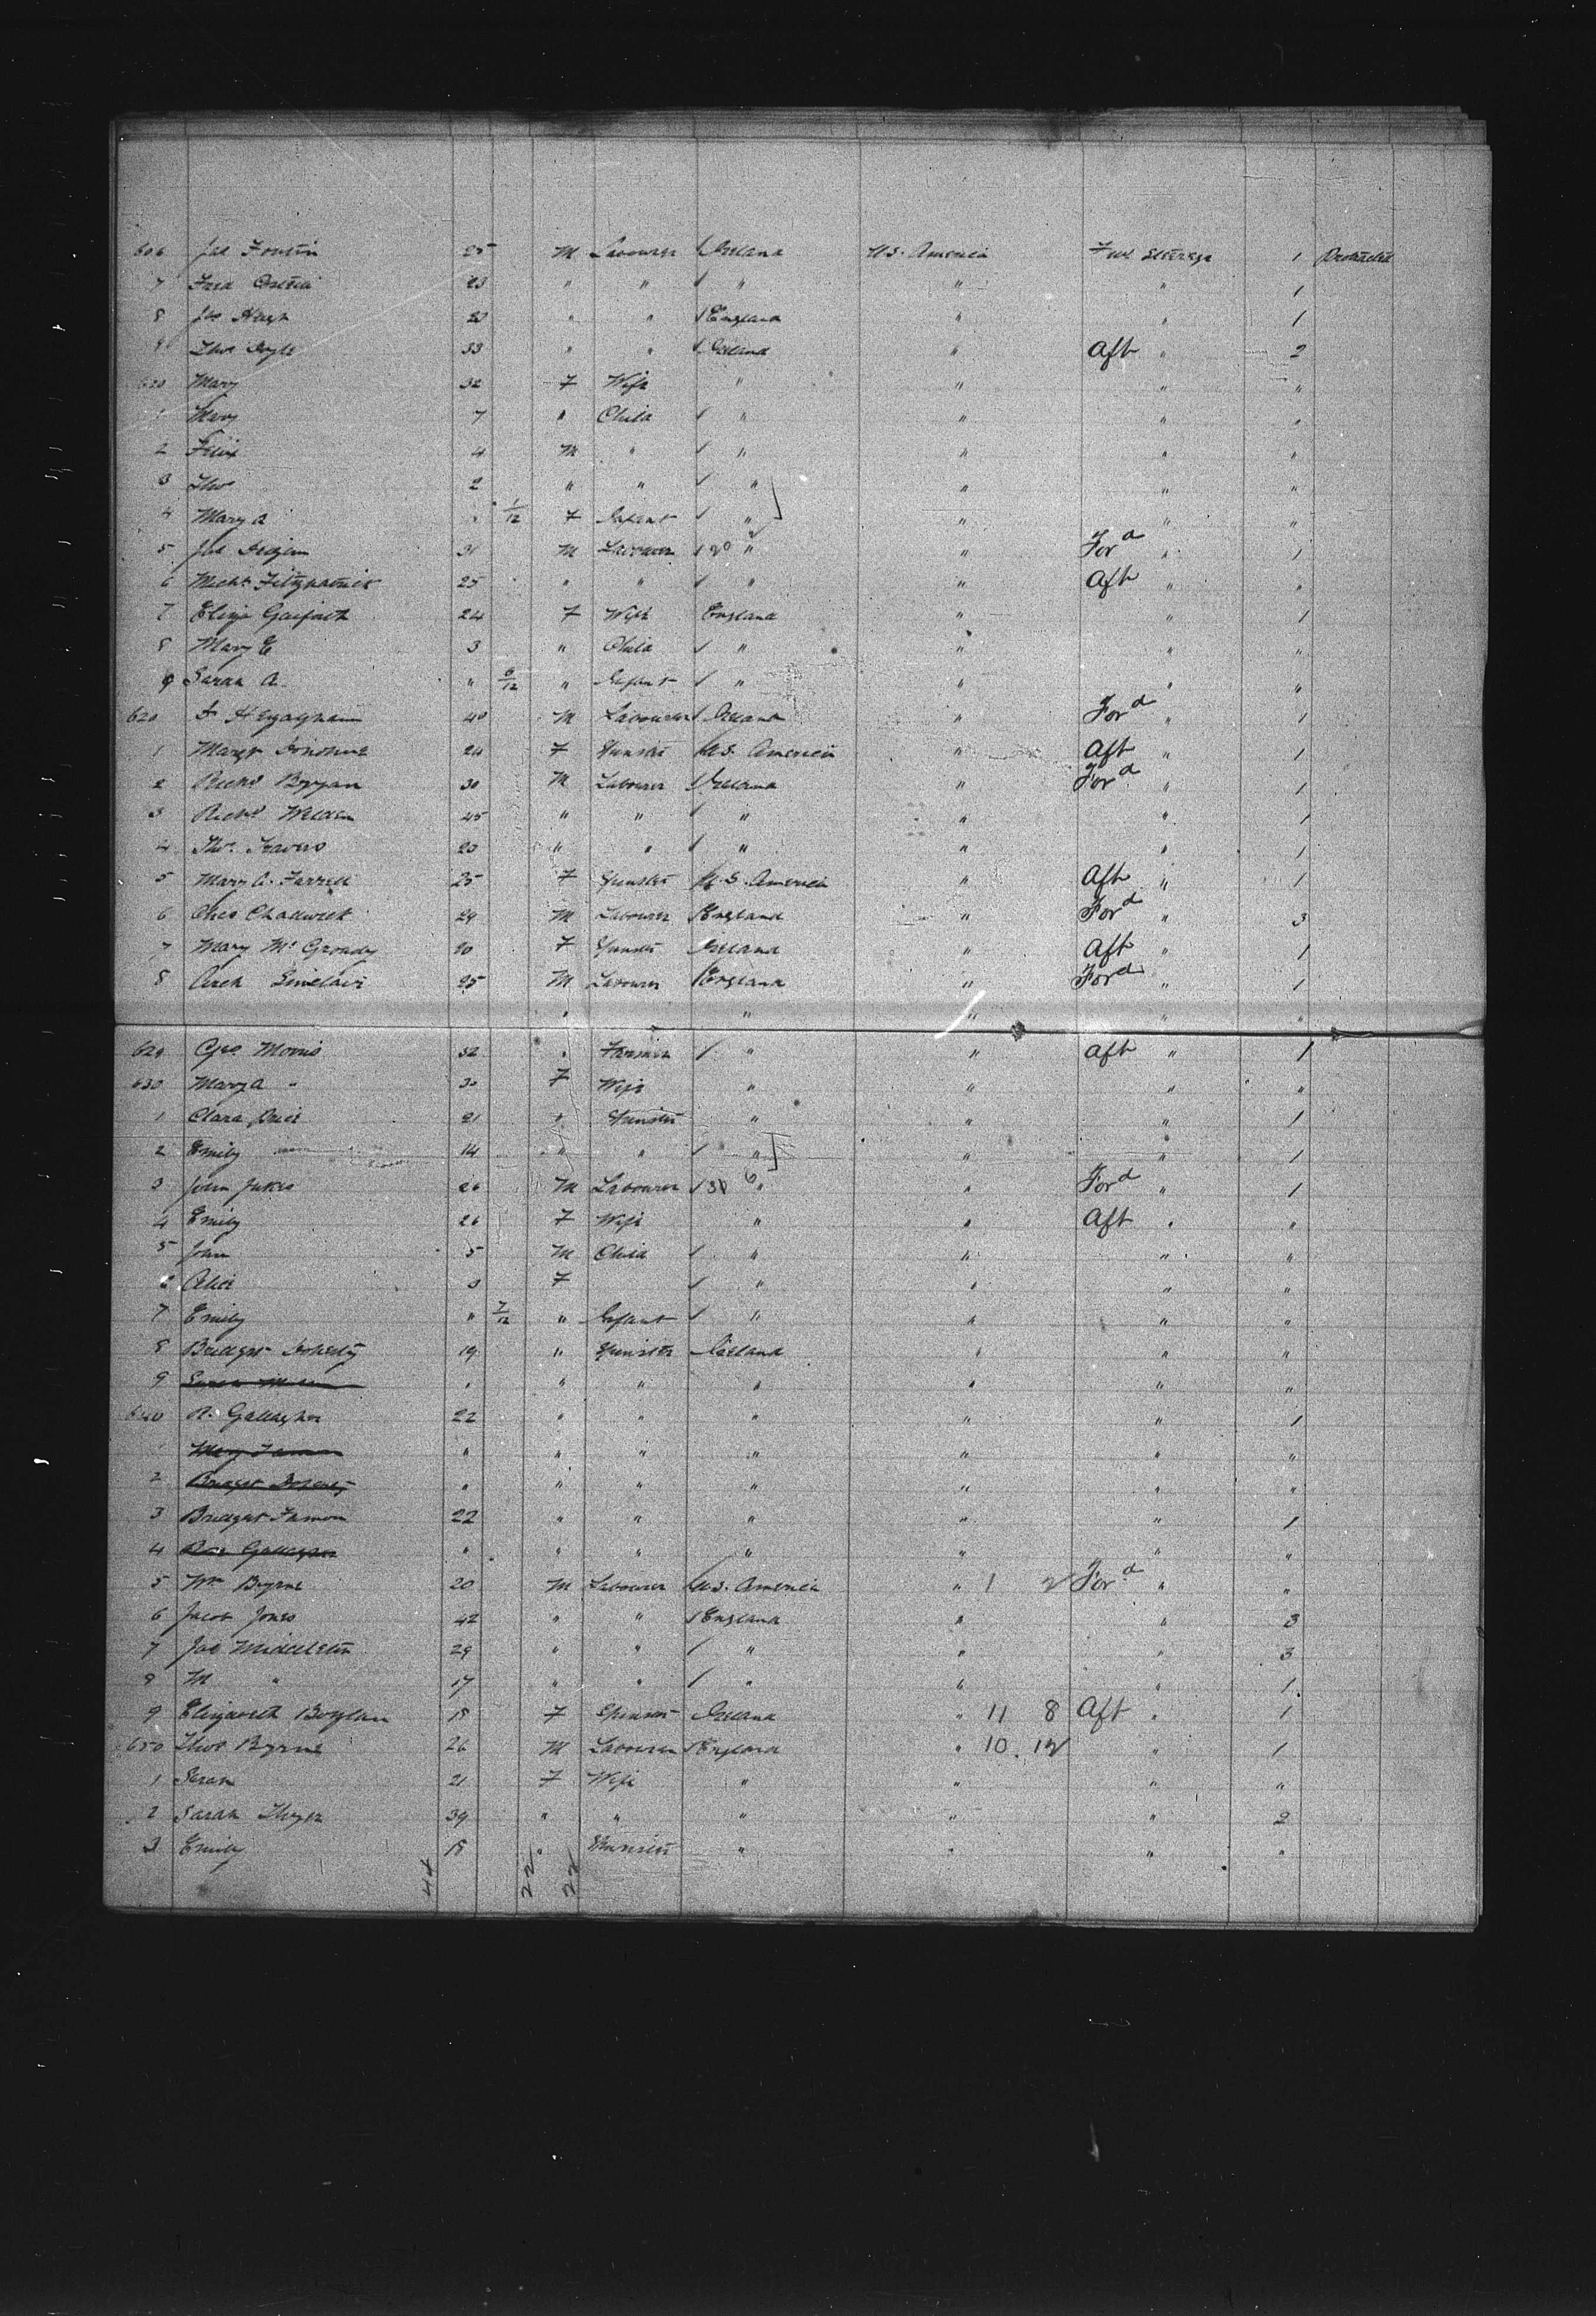 606 Jas 25 M Labourer Ireland U.S. America Fwd Steerage 1 Protracted
7 Fred 23 " " " " " 1
8 Jos 20 " " England " " 1
9 Thos Doyle 33 " " Ireland " Aft " 2
610 Mary 32 F Wife " " " "
1 Mary 7 " Child " " " "
2 Felix 4 M " " " " "
3 Thos 2 " " " " " "
4 Mary A 1/12 F Infant " " " "
5 Jas 31 M Labourer 20 " " Ford " 1
6 Michl Fitzpatrick 25 " " " " Aft " "
7 Eliza 24 F Wife England " " 1
8 Mary E 3 " Child " " " "
9 Sarah A. " 6/12 " Infant " " " "
620 40 M Labourer Ireland " Ford " 1
1 Margt Donohue 24 F Spinster U.S. America " Aft " 1
2 Richd Bryan 30 M Labourer Ireland " Ford " 1
3 Richd 45 " " " " " 1
4 Thos. Travers 20 " " " " " 1
5 Mary A. Farrell 25 F Spinster U.S. America " Aft " 1
6 Chas Chadwick 29 M Labourer England " Ford " 3
7 Mary Mc Grondy 20 F Spinster Ireland " Aft " 1
8 Arch Sinclair 25 M Labourer England " Ford " 1
" " " " "
629 Geo Morris 32 " Farmer " " Aft " 1
630 Mary A " 30 F Wife " " " "
1 Clara Price 21 " Spinster " " " 1
2 Emily 14 " " " " " 1
3 John Jukes 26 M Labourer " " Ford " 1
4 Emily 26 F Wife " " Aft " "
5 John 5 M Child " " " "
6 Alice 3 F " " " "
7 Emily " 7/12 " Infant " " " "
8 Bridget Doherty 19 " Spinster Ireland " " "
9 " " " " " " "
640 R. Gallagher 22 " " " " " 1
1 Mary " " " " " " "
2 Bridget Doherty " " " " " " "
3 Bridget 22 " " " " " 1
4 Rose Gallagher " " " " " " "
5 Wm Byrne 20 M Labourer U.S. America " 1 2 Ford " "
6 Jacob Jones 42 " " England " " 3
7 Jas Middleton 29 " " " " " 3
8 M " 17 " " " " " 1
9 Elizabeth Boylan 18 F Spinster Ireland " 11 8 Aft " 1
650 Thos Byrne 26 M Labourer England " 10. 12 " 1
1 Sarah 21 F Wife " " " "
2 Sarah 39 " " " " " 2
3 Emily 18 " Spinster " " " "
44 22 22